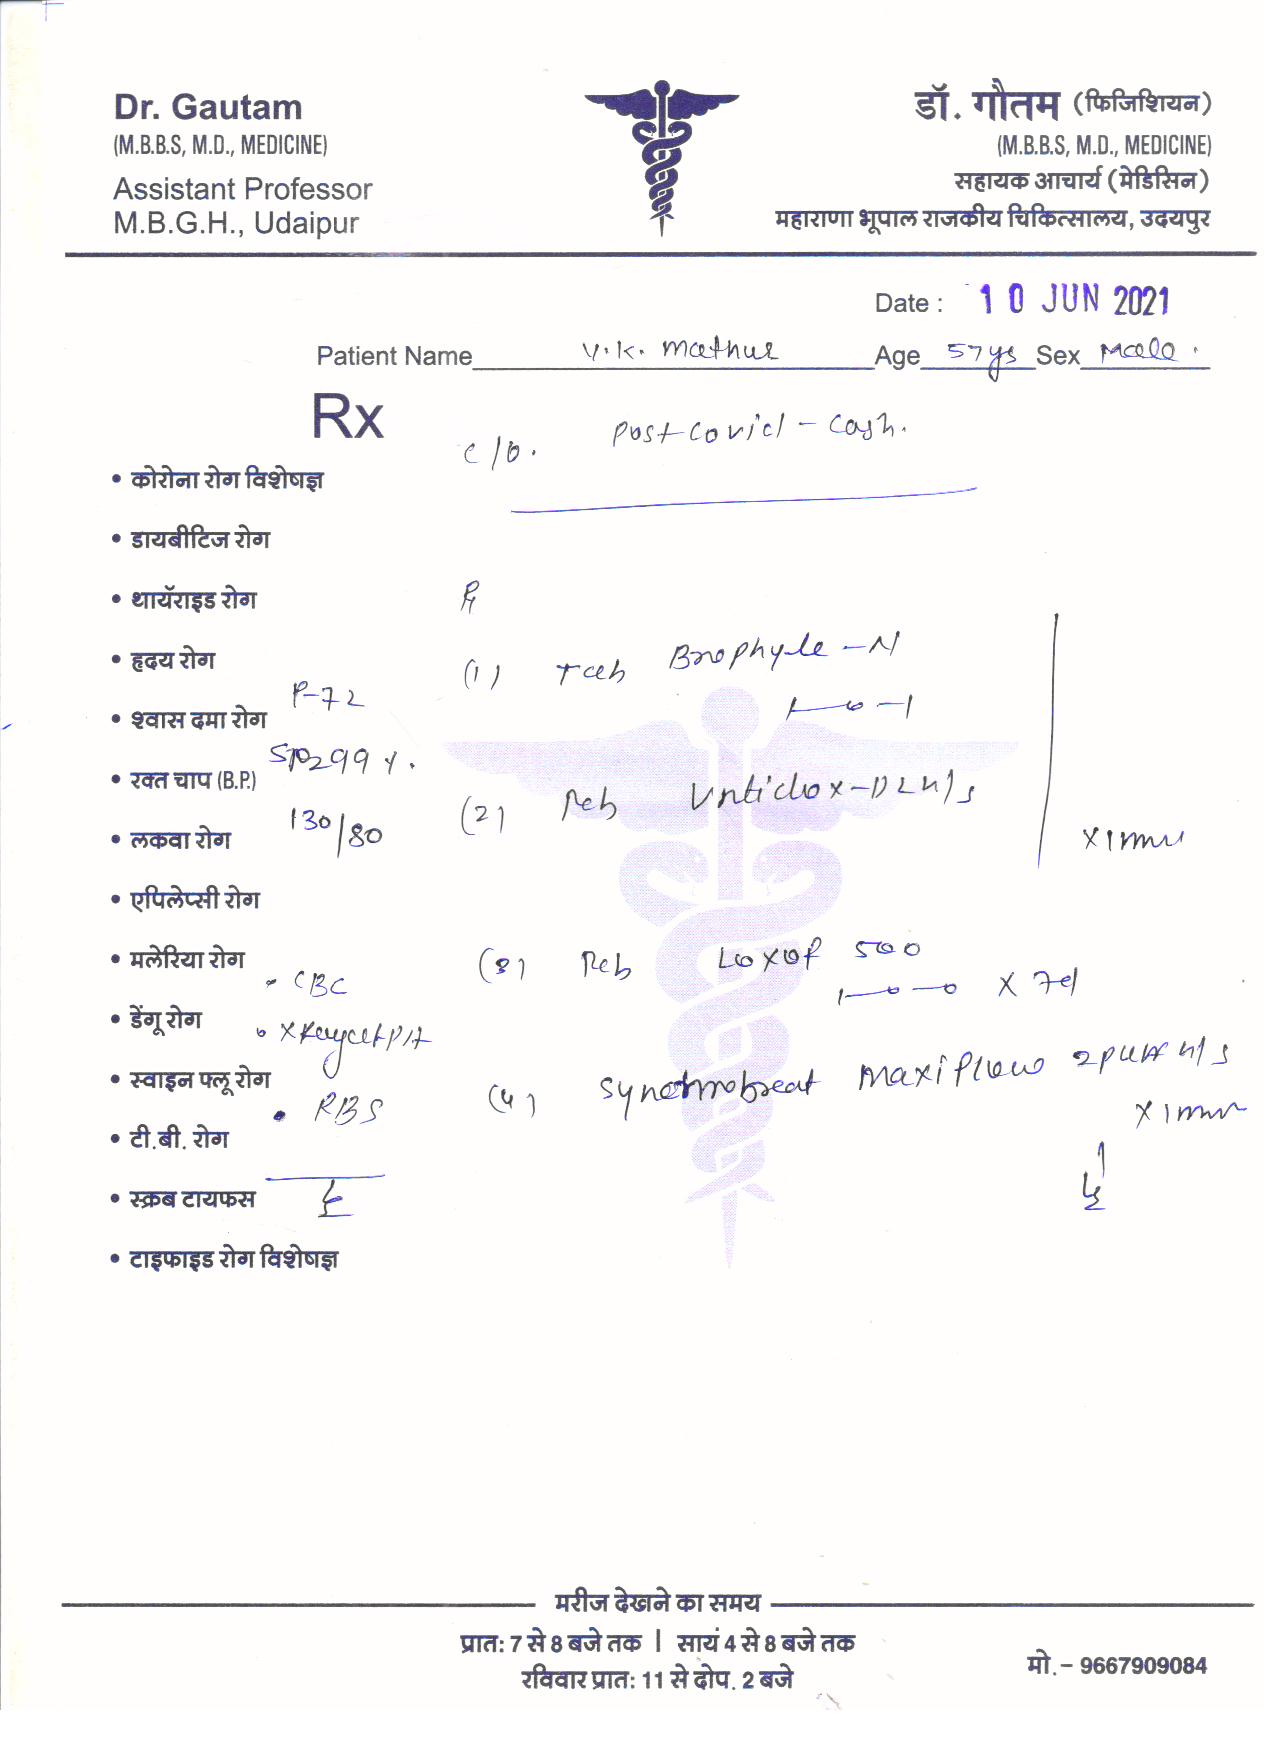 Dr. Gautam
(M.B.B.S, M.D., MEDICINE)
Assistant Professor
M.B.G.H., Udaipur
डॉ. गौतम (फिजिशियन)
(M.B.B.S, M.D., MEDICINE)
सहायक आचार्य (मेडिसिन)
महाराणा भूपाल राजकीय चिकित्सालय, उदयपुर
Date : 10 JUN 2021
Patient Name V.K. Mathur Age 57ys Sex Male.
Rx
C/O. Post covid - Cogh.
• कोरोना रोग विशेषज्ञ
• डायबीटिज रोग
• थायॅराइड रोग
• हृदय रोग
(1) Tab Brophyle-N
1-0-1
P-72
• श्वास दमा रोग
SPO2 99 %.
• रक्त चाप (B.P.)
(2) Tab
130/80
• लकवा रोग
• एपिलेप्सी रोग
• मलेरिया रोग
(3) Tab Loxof 500
1-0-0 X 7d
• CBC
• डेंगू रोग
• स्वाइन फ्लू रोग
(4) Maxiflow 2puff h/s
• RBS
• टी.बी. रोग
• स्क्रब टायफस
• टाइफाइड रोग विशेषज्ञ
मरीज देखने का समय
प्रातः 7 से 8 बजे तक | सायं 4 से 8 बजे तक
रविवार प्रातः 11 से दोप. 2 बजे
मो.- 9667909084